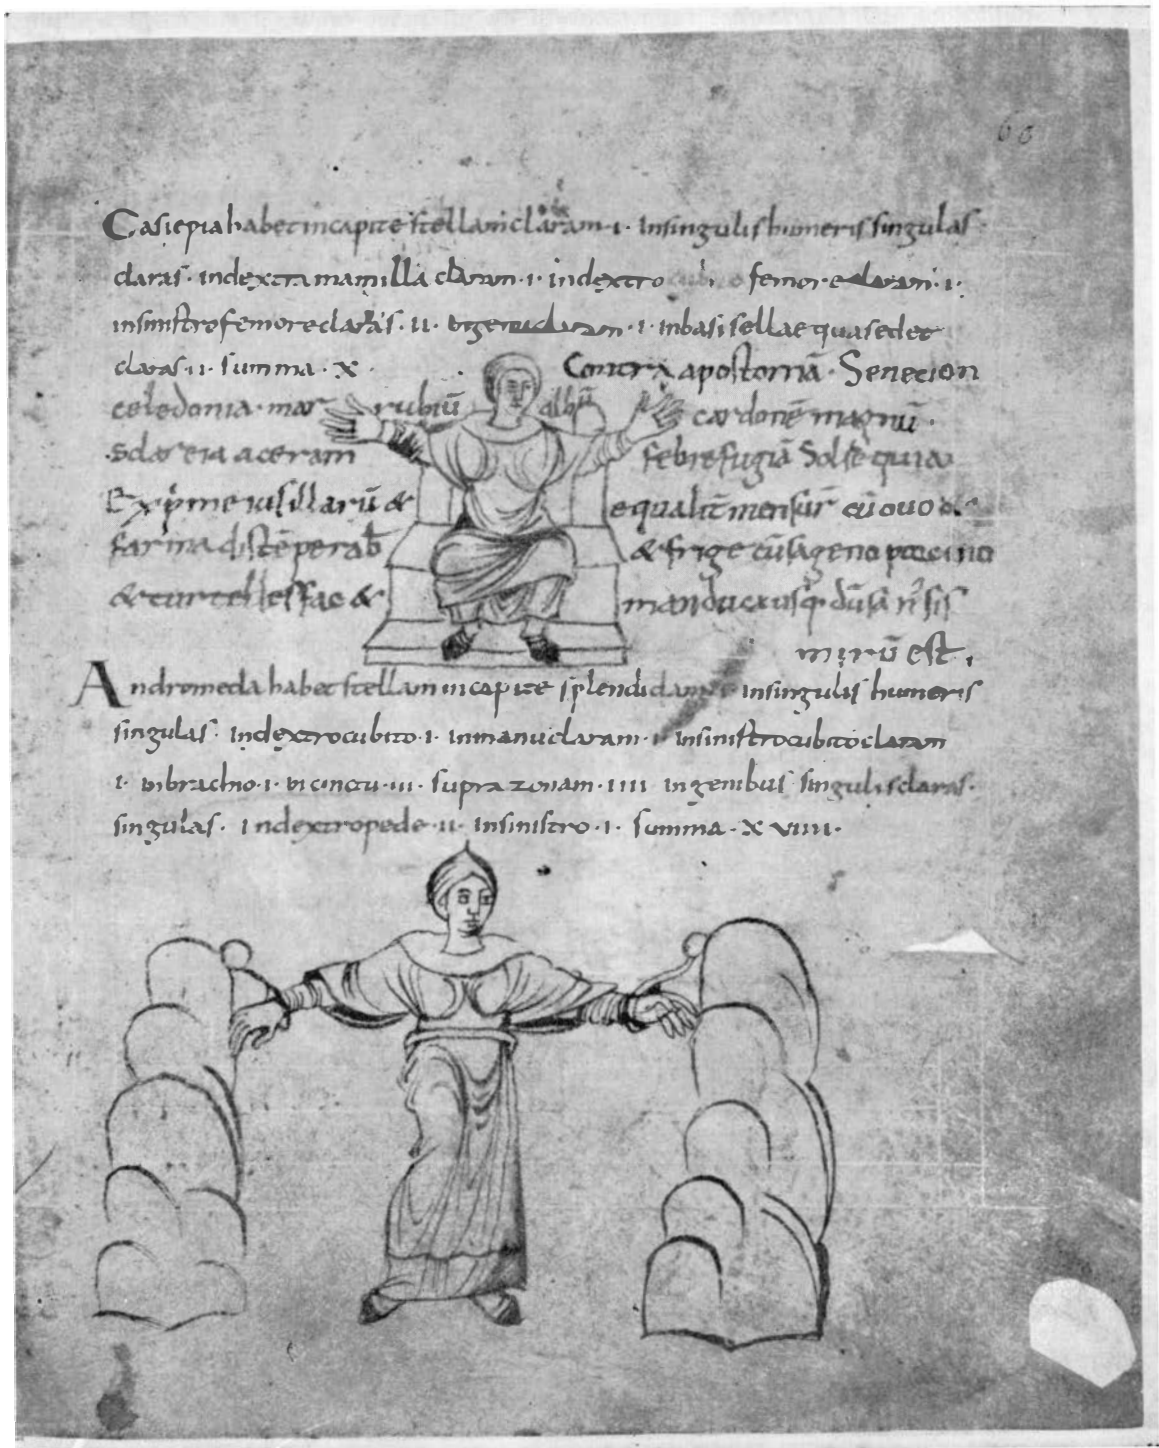 60
Casiepia habet incapite stellam claram · i · Insingulis humeris singulas
claras · indextra mamilla claram · i · indextro femore claram · i ·
insinistro femore claras · ii · i · inbasi sellae qua sedet
claras · ii · summa · x · Contra apostomā · Senecion
celedonia · mar rubiū albū cardonē magnū ·
sclareia aceram febrefugiā Solsequia
Exp̄me iusillarū & equalit̄ mensur̄ cū ovo de
farina distēperab̄ & frige cū sageno porcino
& turtellas fac & manduca usq; dū san̄ sis
mirū est ·
Andromeda habet stellam incapite splendidam insingulis humeris
singulas · Indextro cubito · i · inmanu claram · i · insinistro cubito claram
i · inbrachio · i · incinctu · iii · supra zonam · iiii · ingenibus singulis claras ·
singulas · Indextro pede · ii · insinistro · i · summa · x viiii ·